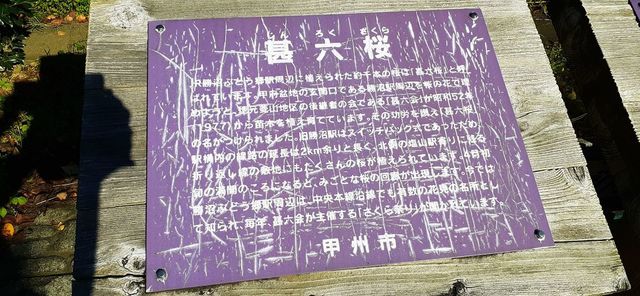 しん ろく ざくら
甚六桜
JR勝沼ぶどう郷駅周辺に植えられた約千本の桜は「甚六桜」と呼
ばれています。甲府盆地の玄関口である勝沼駅周辺を桜の花で埋
めようと、地元菱山地区の後継者の会である「甚六会」が昭和52年
(1977)から苗木を植え育てています。その功労を讃え「甚六桜」
の名がつけられました。旧勝沼駅はスイッチバック式であったため
駅構内の線路の延長は2km余りと長く、北側の塩山駅寄りに残る
折り返し線の敷地にもたくさんの桜が植えられています。4月初
旬の満開のころになると、みごとな桜の回廊が出現します。今では
勝沼ぶどう郷駅周辺は、中央本線沿線でも有数の花見の名所とし
て知られ、毎年、甚六会が主催する「さくら祭り」が開かれています。
甲州市